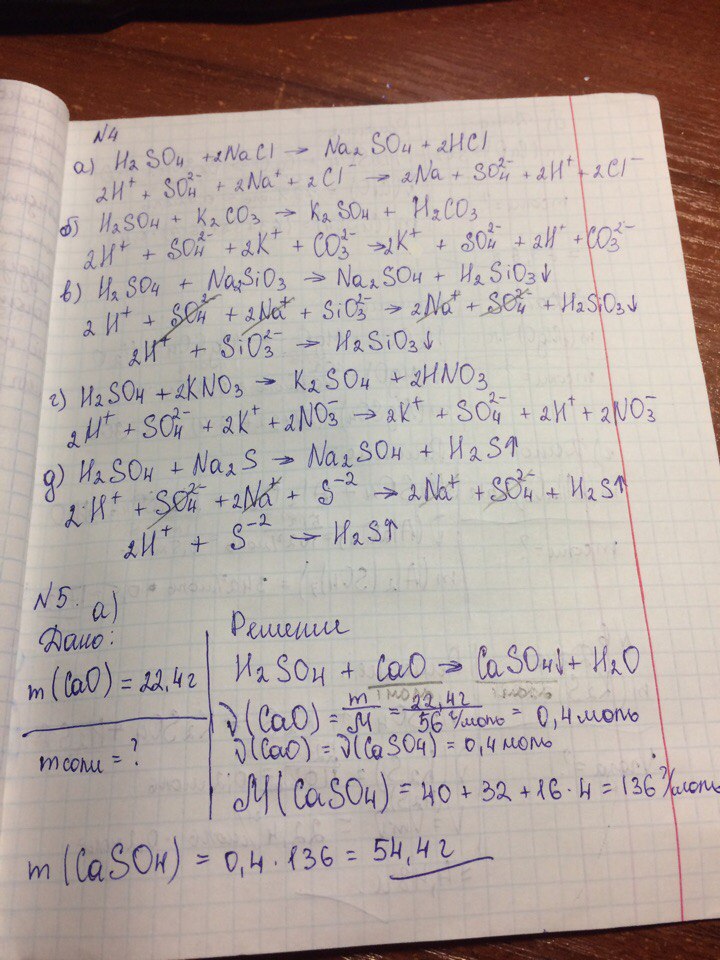 №4
а) H₂SO₄ + 2NaCl → Na₂SO₄ + 2HCl
2H⁺ + SO₄²⁻ + 2Na⁺ + 2Cl⁻ → 2Na + SO₄²⁻ + 2H⁺ + 2Cl⁻
б) H₂SO₄ + K₂CO₃ → K₂SO₄ + H₂CO₃
2H⁺ + SO₄²⁻ + 2K⁺ + CO₃²⁻ → 2K⁺ + SO₄²⁻ + 2H⁺ + CO₃²⁻
в) H₂SO₄ + Na₂SiO₃ → Na₂SO₄ + H₂SiO₃↓
2H⁺ + SO₄²⁻ + 2Na⁺ + SiO₃²⁻ → 2Na⁺ + SO₄²⁻ + H₂SiO₃↓
2H⁺ + SiO₃²⁻ → H₂SiO₃↓
г) H₂SO₄ + 2KNO₃ → K₂SO₄ + 2HNO₃
2H⁺ + SO₄²⁻ + 2K⁺ + 2NO₃⁻ → 2K⁺ + SO₄²⁻ + 2H⁺ + 2NO₃⁻
д) H₂SO₄ + Na₂S → Na₂SO₄ + H₂S↑
2H⁺ + SO₄²⁻ + 2Na⁺ + S⁻² → 2Na⁺ + SO₄²⁻ + H₂S↑
2H⁺ + S⁻² → H₂S↑
№5 а)
Дано:
m(CaO) = 22,4г
m соли = ?
Решение
H₂SO₄ + CaO → CaSO₄↓ + H₂O
ν(CaO) = m/M = 22,4г/56 г/моль = 0,4 моль
ν(CaO) = ν(CaSO₄) = 0,4 моль
M(CaSO₄) = 40 + 32 + 16·4 = 136 г/моль
m(CaSO₄) = 0,4 · 136 = 54,4г